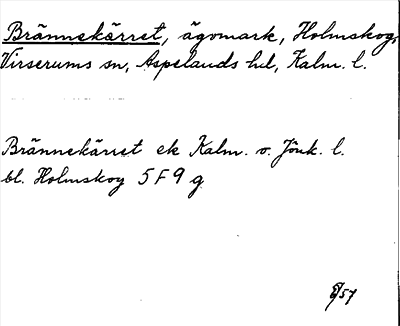 Brännekärret, ägomark, Holmskog,
Virserums sn, Aspelands hd, Kalm. l.
Brännekärret ek Kalm. o. Jönk. l.
bl. Holmskog 5 F 9 g
/57